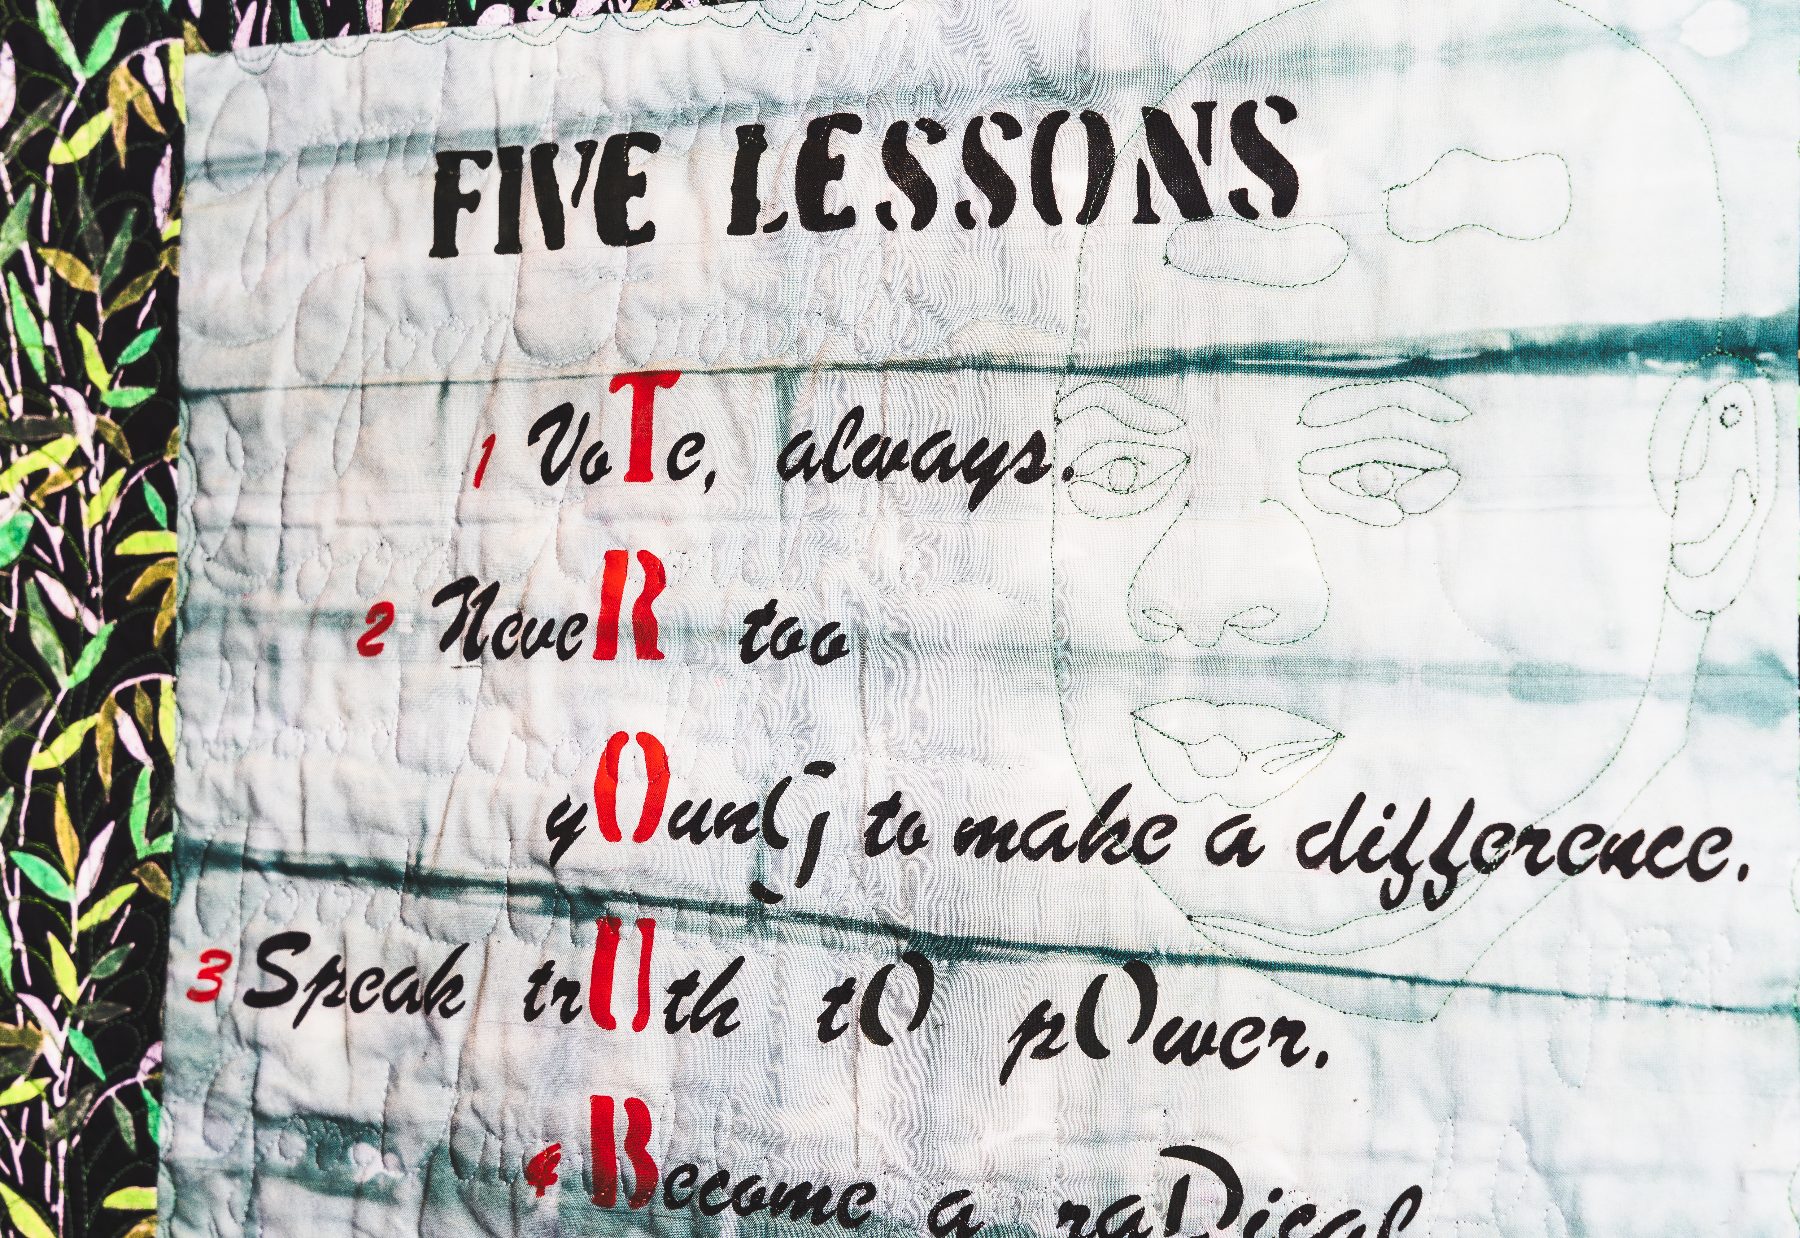 FIVE LESSONS
1 VoTe, always.
2 NeveR too
yOunG to make a difference.
3 Speak trUth tO pOwer.
4 Become a raDical